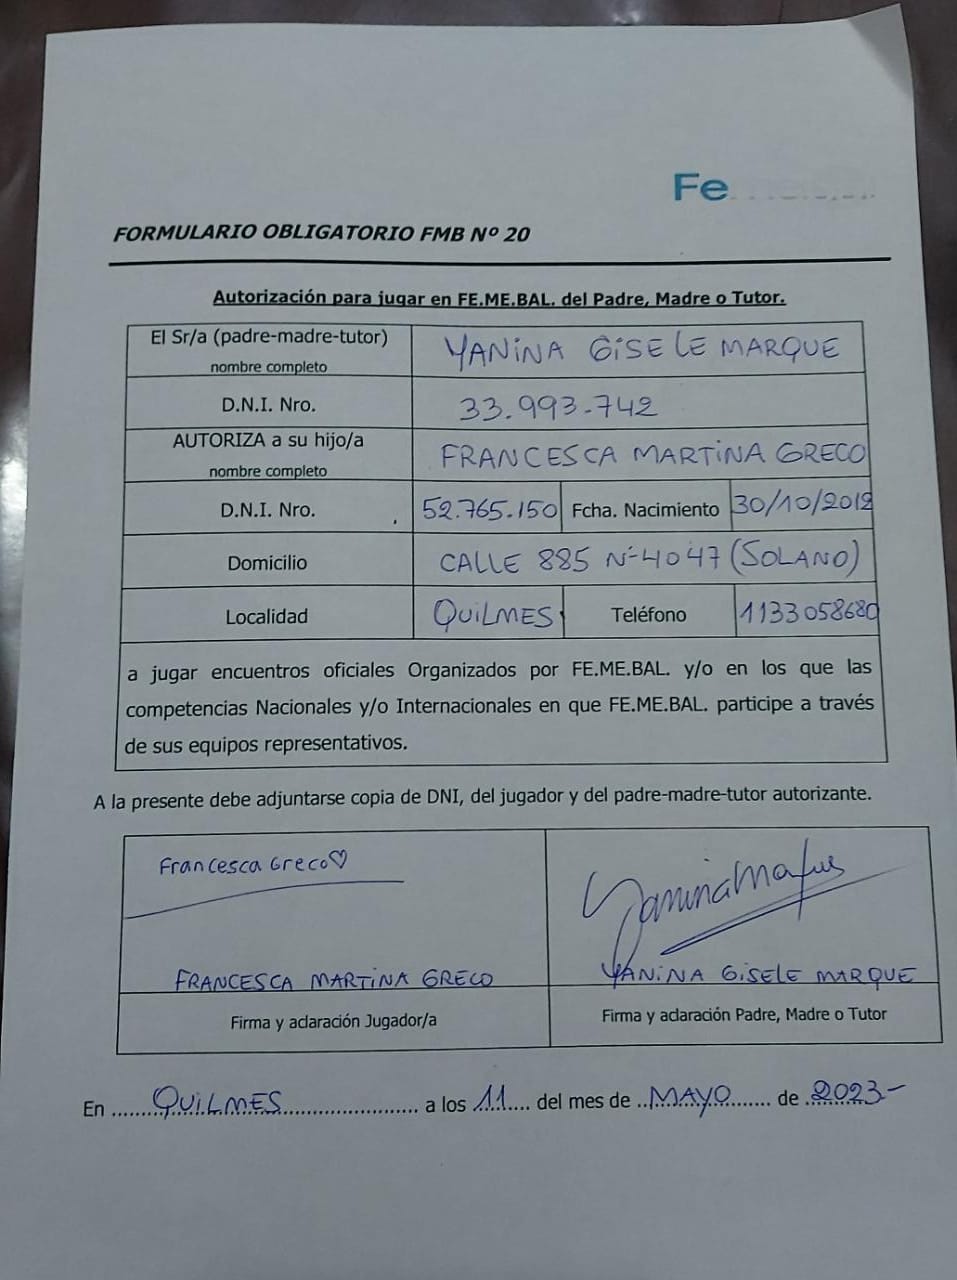 Fe
FORMULARIO OBLIGATORIO FMB Nº 20
Autorización para jugar en FE.ME.BAL. del Padre, Madre o Tutor.
El Sr/a (padre-madre-tutor)
nombre completo
YANINA GISELE MARQUE
D.N.I. Nro.
33.993.742
AUTORIZA a su hijo/a
nombre completo
FRANCESCA MARTINA GRECO
D.N.I. Nro.
52.765.150
Fcha. Nacimiento
30/10/2012
Domicilio
CALLE 885 Nº 4047 (SOLANO)
Localidad
QUILMES
Teléfono
1133058680
a jugar encuentros oficiales Organizados por FE.ME.BAL. y/o en los que las
competencias Nacionales y/o Internacionales en que FE.ME.BAL. participe a través
de sus equipos representativos.
A la presente debe adjuntarse copia de DNI, del jugador y del padre-madre-tutor autorizante.
Francesca Greco♡
FRANCESCA MARTINA GRECO
Firma y aclaración Jugador/a
Yanina Marque
YANINA GISELE MARQUE
Firma y aclaración Padre, Madre o Tutor
En ......QUILMES...................... a los 11.... del mes de ..MAYO....... de 2023-